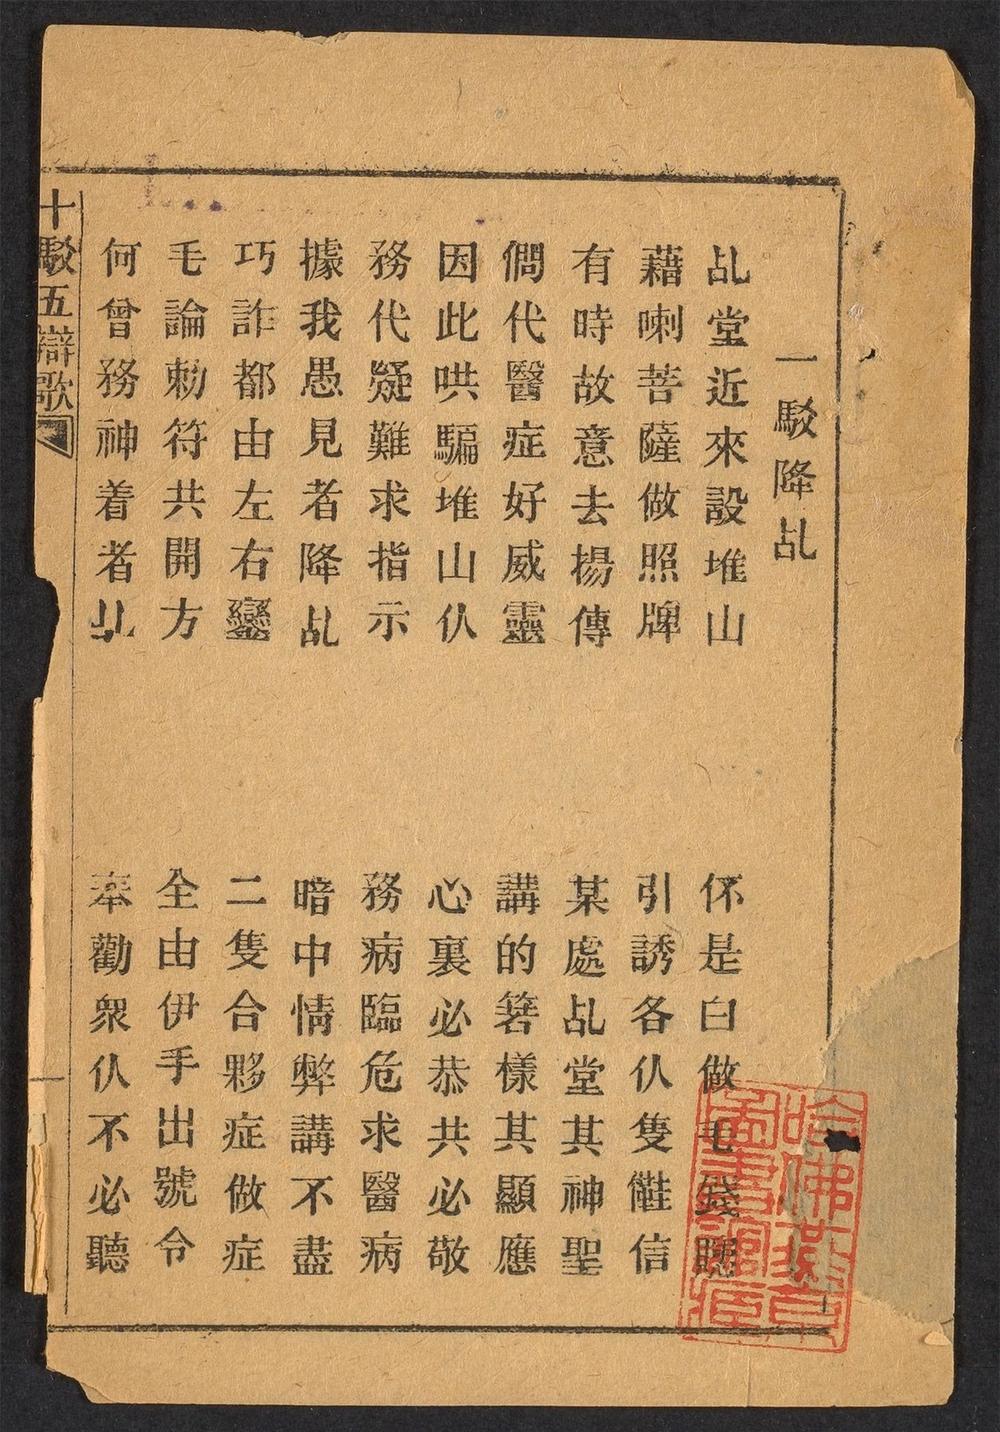 一駁降乩
乩堂近來設堆山 伓是白做毛錢賜
藉喇菩薩做照牌 引誘各仈隻儺信
有時故意去楊傳 某處乩堂其神聖
僩代醫症好威靈 講的箬樣其顯應
因此哄騙堆山仈 心裏必恭共必敬
務代疑難求指示 務病臨危求醫病
據我愚見者降乩 暗中情弊講不盡
巧詐都由左右鸞 二隻合夥症做症
毛論勅符共開方 全由伊手出號令
何曾務神着者乩 奉勸衆仈不必聽
十駁五辯歌
一
哈佛燕京
圖書館